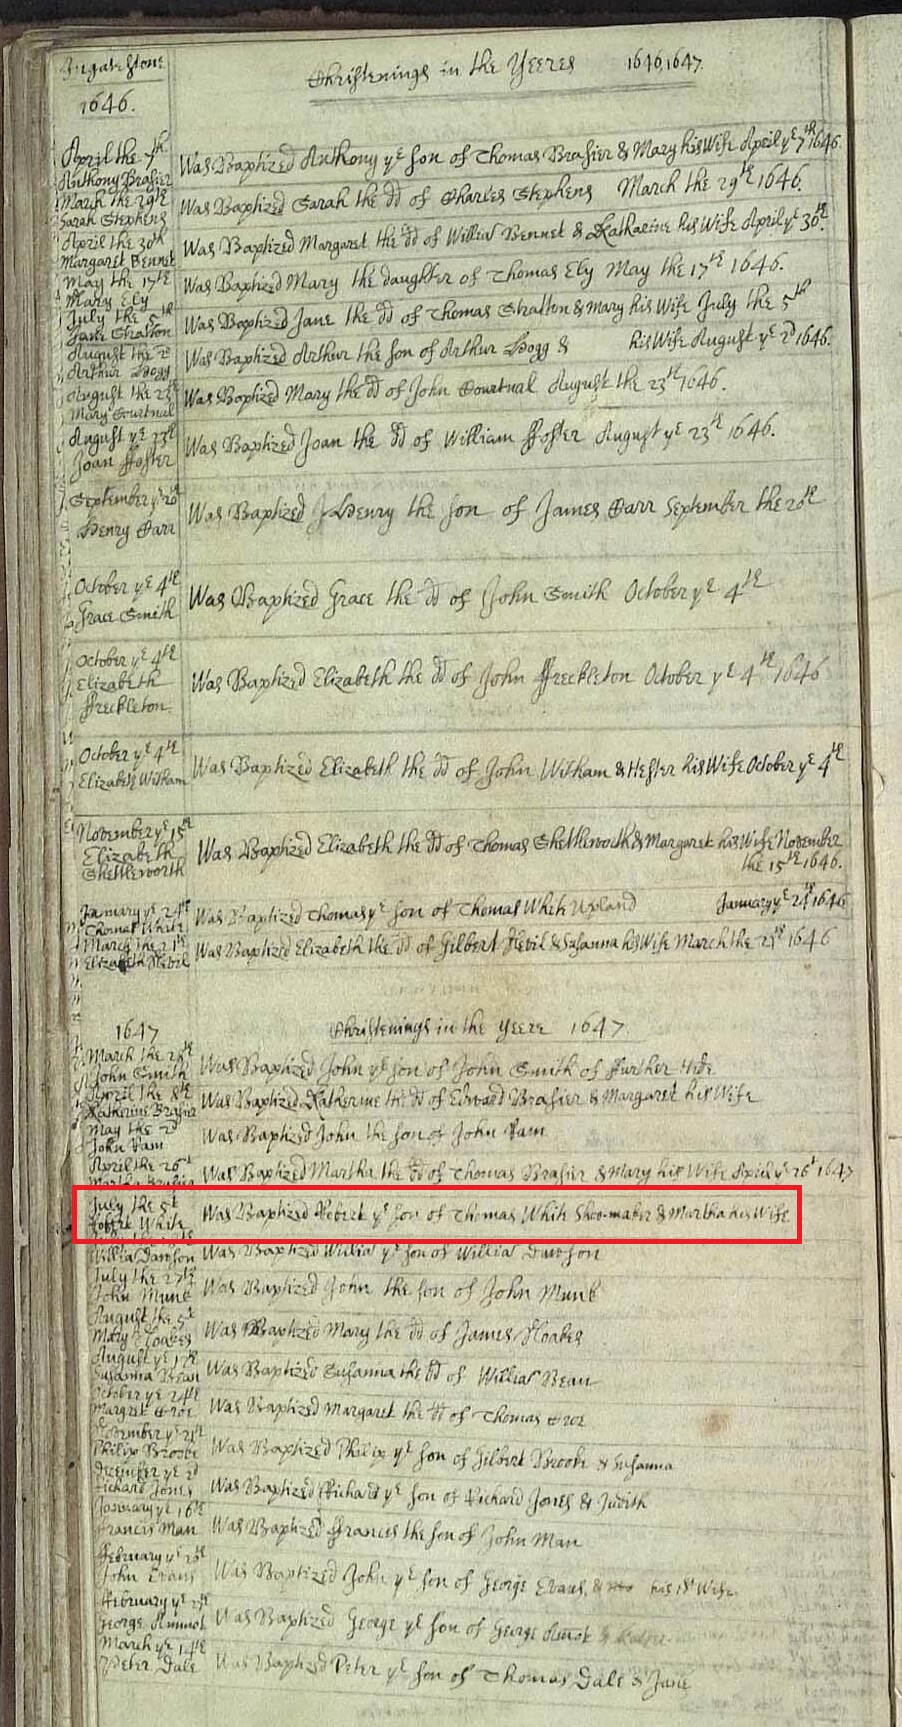 Ingatestone
1646.
Christenings in the Yeeres 1646,1647.
April the 7th
Anthony Brasier
Was Baptized Anthony ye son of Thomas Brasier & Mary his Wife April ye 7th 1646.
March the 29th
Sarah Stephens
Was Baptized Sarah the dd of Charles Stephens March the 29th 1646.
April the 30th
Margaret Bennet
Was Baptized Margaret the dd of Willia Bennet & Katharine his Wife April ye 30th.
May the 17th
Mary Ely
Was Baptized Mary the daughter of Thomas Ely May the 17th 1646.
July the 5th
Jane Stratton
Was Baptized Jane the dd of Thomas Stratton & Mary his Wife July the 5th
August the 2d
Arthur Hogg
Was Baptized Arthur the son of Arthur Hogg & his Wife August ye 2d 1646.
August the 23th
Mary Courtnal
Was Baptized Mary the dd of John Courtnal August the 23th 1646.
August ye 23th
Joan ffoster
Was Baptized Joan the dd of William ffoster August ye 23th 1646.
September ye 20th
Henry Carr
Was Baptized Henry the son of James Carr September the 20th
October ye 4th
Grace Smith
Was Baptized Grace the dd of John Smith October ye 4th
October ye 4th
Elizabeth
ffreckleton
Was Baptized Elizabeth the dd of John ffreckleton October ye 4th 1646
October ye 4th
Elizabeth Witham
Was Baptized Elizabeth the dd of John Witham & Hester his Wife October ye 4th
November ye 15th
Elizabeth
Shettleworth
Was Baptized Elizabeth the dd of Thomas Shettleworth & Margaret his Wife November
the 15th 1646.
January ye 24th
Thomas White
Was Baptized Thomas ye son of Thomas White Upland January ye 24th 1646
March the 21th
Elizabeth Nevil
Was Baptized Elizabeth the dd of Gilbert Nevil & Susanna his Wife March the 21th 1646
1647
Christenings in the Yeere 1647
March the 28th
John Smith
Was Baptized John ye son of John Smith of Further
April the 8th
Katherine Brasier
Was Baptized Katherine the dd of Edward Brasier & Margaret his Wife
May the 2d
John Pam
Was Baptized John the son of John Pam
April the 26th
Martha Brasier
Was Baptized Martha the dd of Thomas Brasier & Mary his Wife April ye 26t 1647
July the 5t
Robert White
Was Baptized Robert ye son of Thomas White Shoo-maker & Martha his Wife
Willia Davison
Was Baptized Willia ye son of Willia Davison
July the 27th
John Munk
Was Baptized John the son of John Munk
August the 5t
Mary Noakes
Was Baptized Mary the dd of James Noakes
August ye 17th
Susanna Bean
Was Baptized Susanna the dd of Willia Bean
October ye 24th
Margret
Was Baptized Margaret the dd of Thomas
November ye 21th
Philip Brooke
Was Baptized Philip ye son of Gilbert Brooke & Susanna
December ye 2d
Richard Jones
Was Baptized Richard ye son of Richard Jones & Judith
January ye 16th
Francis Man
Was Baptized ffrancis the son of John Man
ffebruary ye 20th
John Evans
Was Baptized John ye son of George Evans, & his 1st Wife.
ffebruary ye
George
Was Baptized George ye son of George
March ye 14th
Peter Dale
Was Baptized Peter ye son of Thomas Dale & Jane